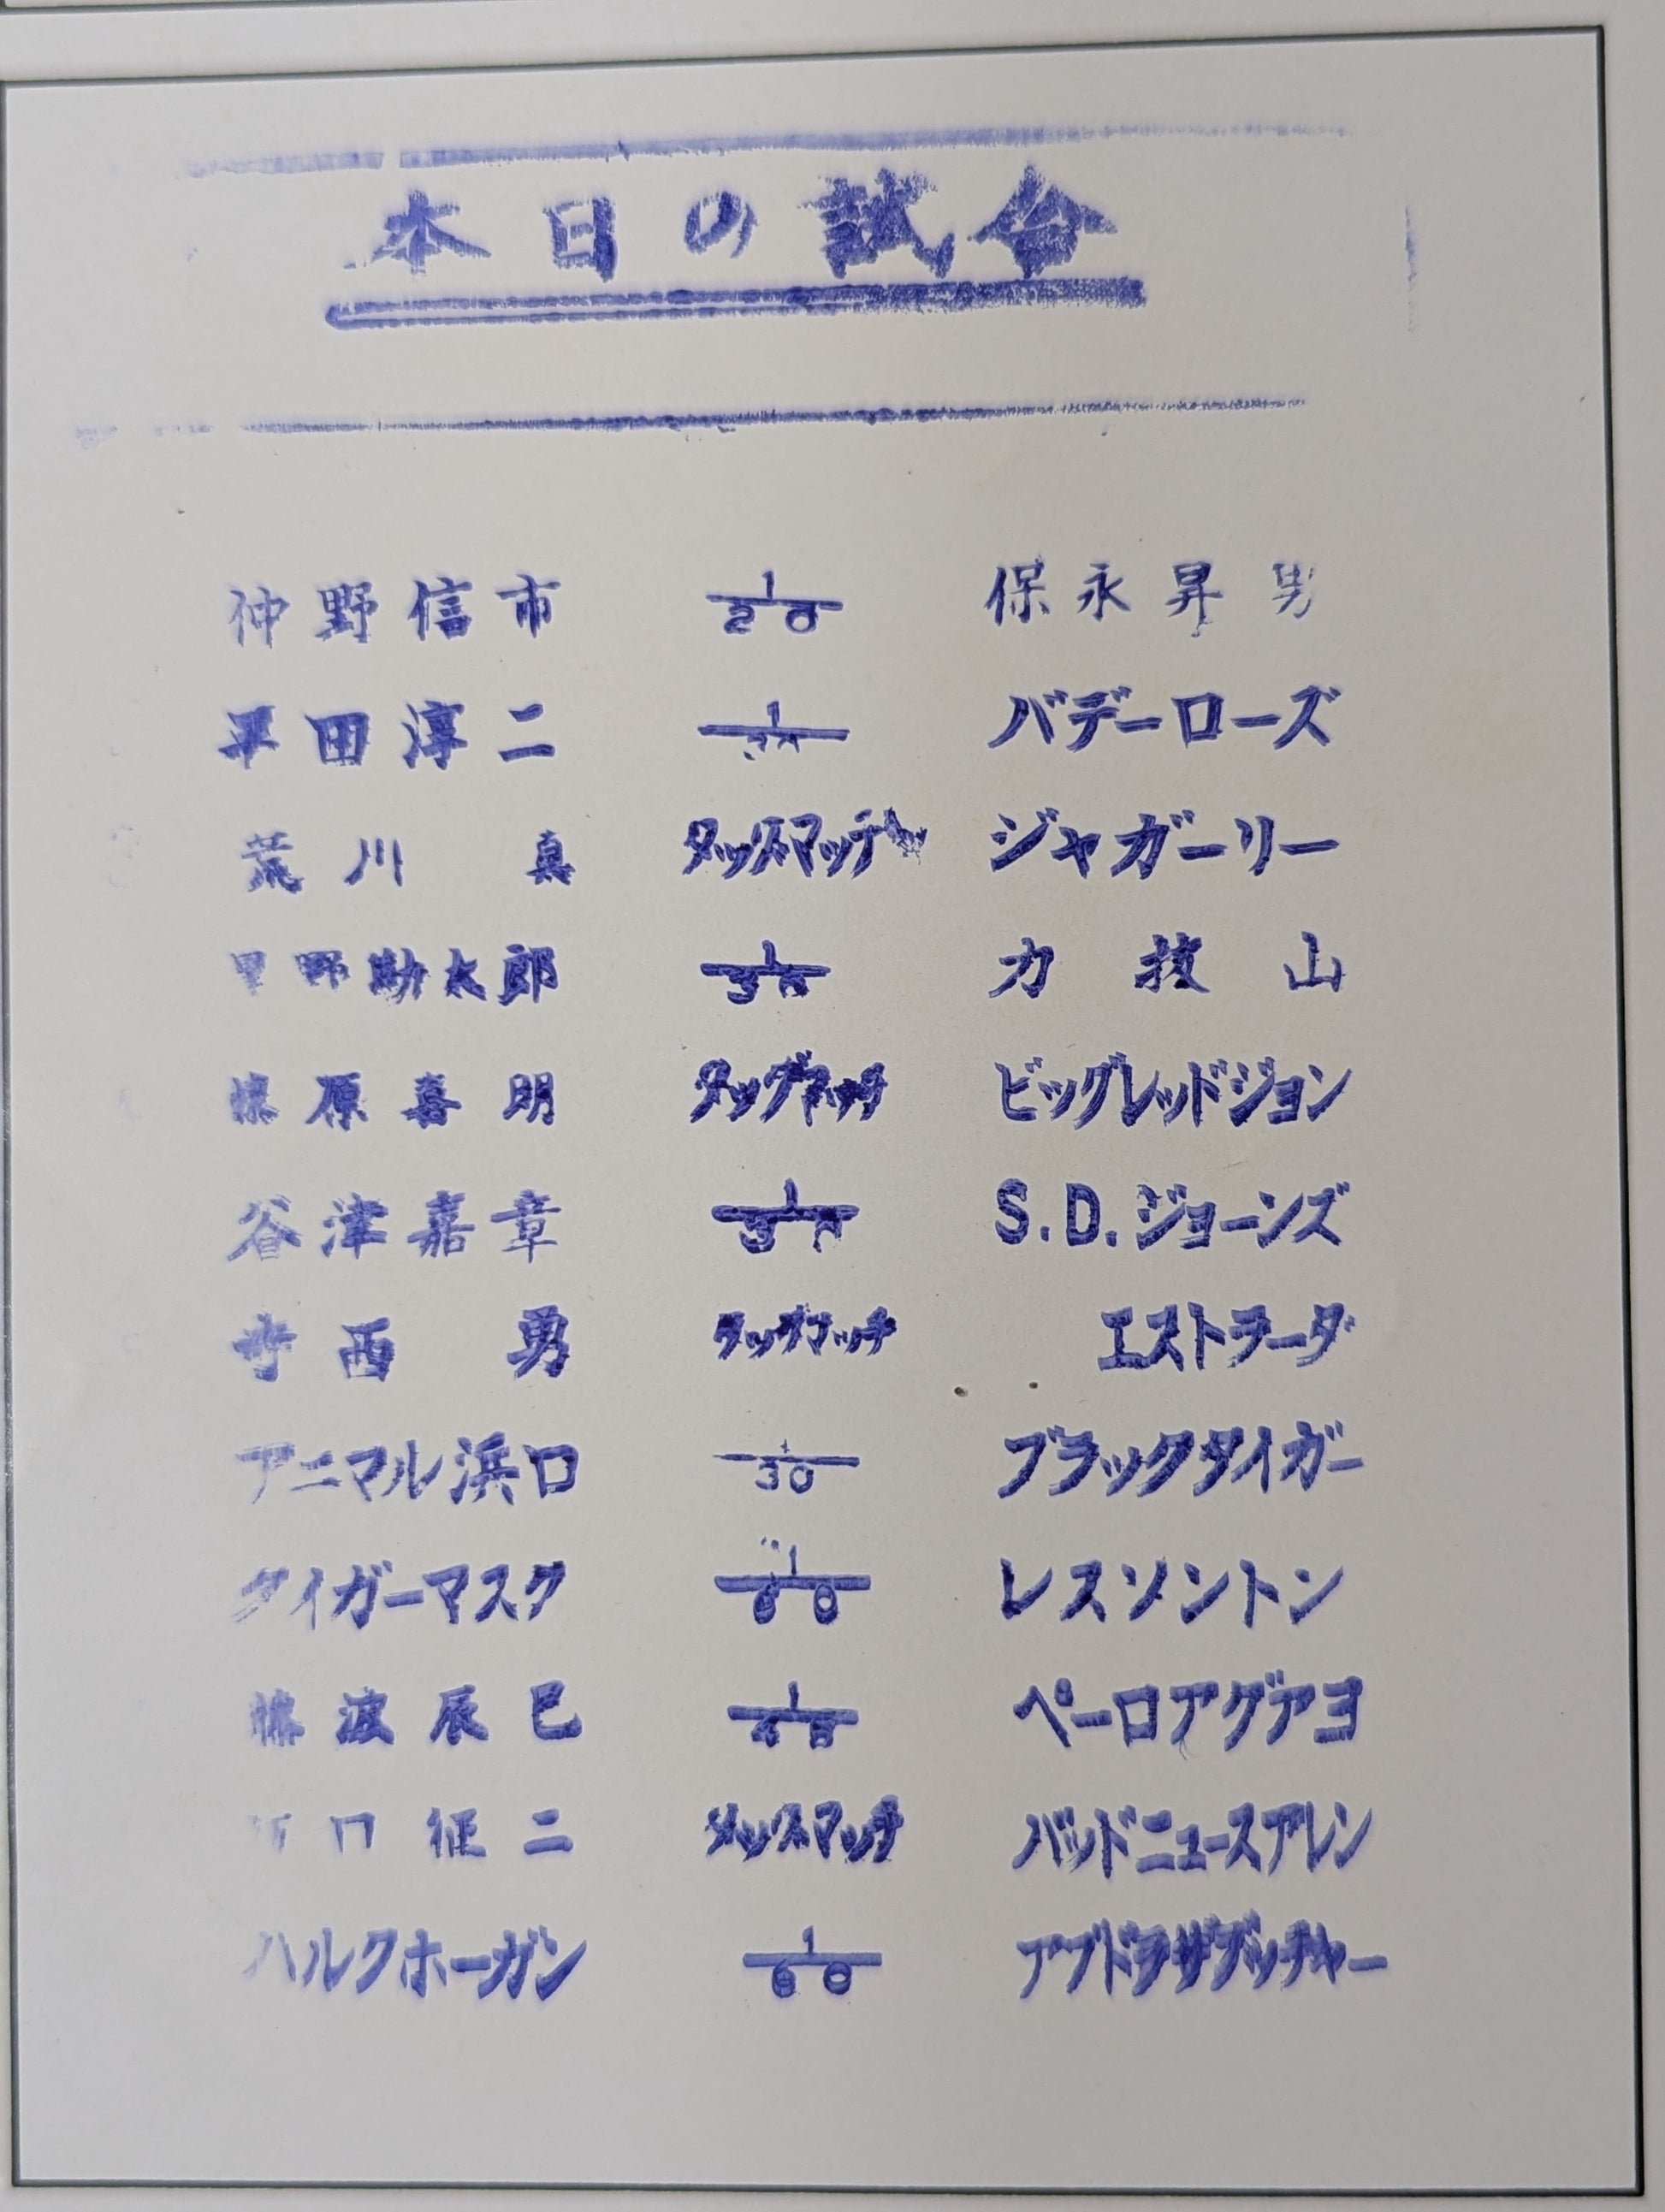 本日の試合
仲野信市 1/20 保永昇男
平田淳二 1 バデーローズ
荒川 真 タッグマッチ ジャガーリー
野勘太郎 1/3 力抜山
藤原喜明 タッグマッチ ビッグレッドジョン
谷津嘉章 1/3 S.D.ジョーンズ
寺西 勇 タッグマッチ エストラーダ
アニマル浜口 1/30 ブラックタイガー
タイガーマスク 1/60 レスソントン
藤波辰巳 1/45 ペーロアグアヨ
口征二 タッグマッチ バッドニュースアレン
ハルクホーガン 1/60 アブドラザブッチャー